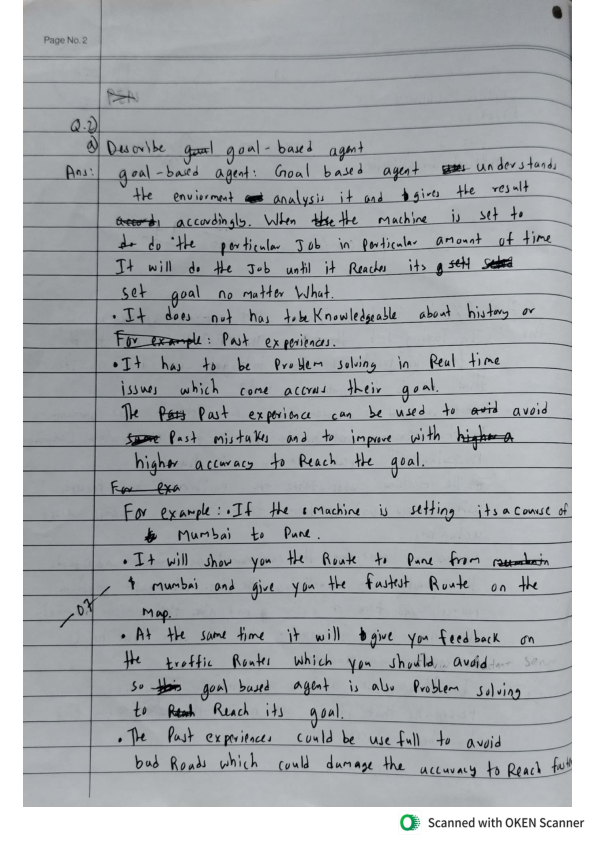 Page No. 2
Q.2)
a) Describe goal-based agent
Ans: goal-based agent: Goal based agent understands
the enviorment analysis it and gives the result
accordingly. When the machine is set to
do the perticular Job in Perticular amount of time
It will do the Job until it Reaches its
set goal no matter What.
• It does not has to be Knowledgeable about history or
For example: Past experiences.
• It has to be Problem solving in Real time
issues which come accross their goal.
The Past experience can be used to avoid
Past mistakes and to improve with
higher accuracy to Reach the goal.
For exa
For example: • If the Machine is setting its a course of
Mumbai to Pune.
• It will show you the Route to Pune from
Mumbai and give you the fastest Route on the
07
Map.
• At the same time it will give you feedback on
the traffic Routes which you should, avoid
so goal based agent is also Problem solving
to Reach its goal.
• The Past experiences could be use full to avoid
bad Roads which could damage the accuracy to Reach
Scanned with OKEN Scanner